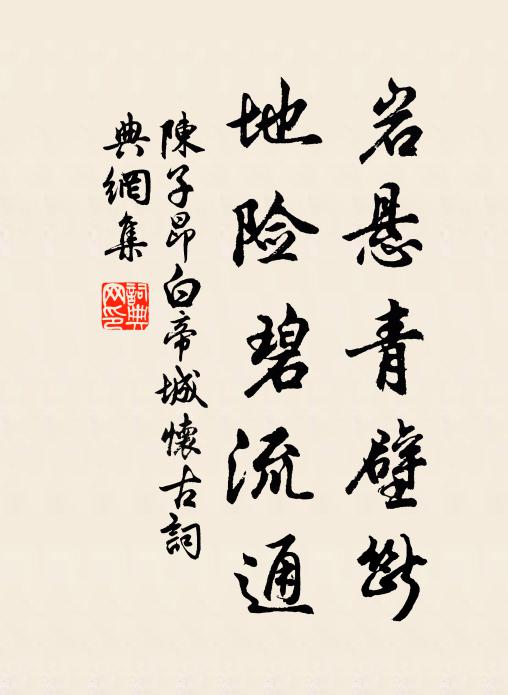 岩悬青壁断
地险碧流通
陳子昂白帝城懷古詞
典網集
詞典
网印